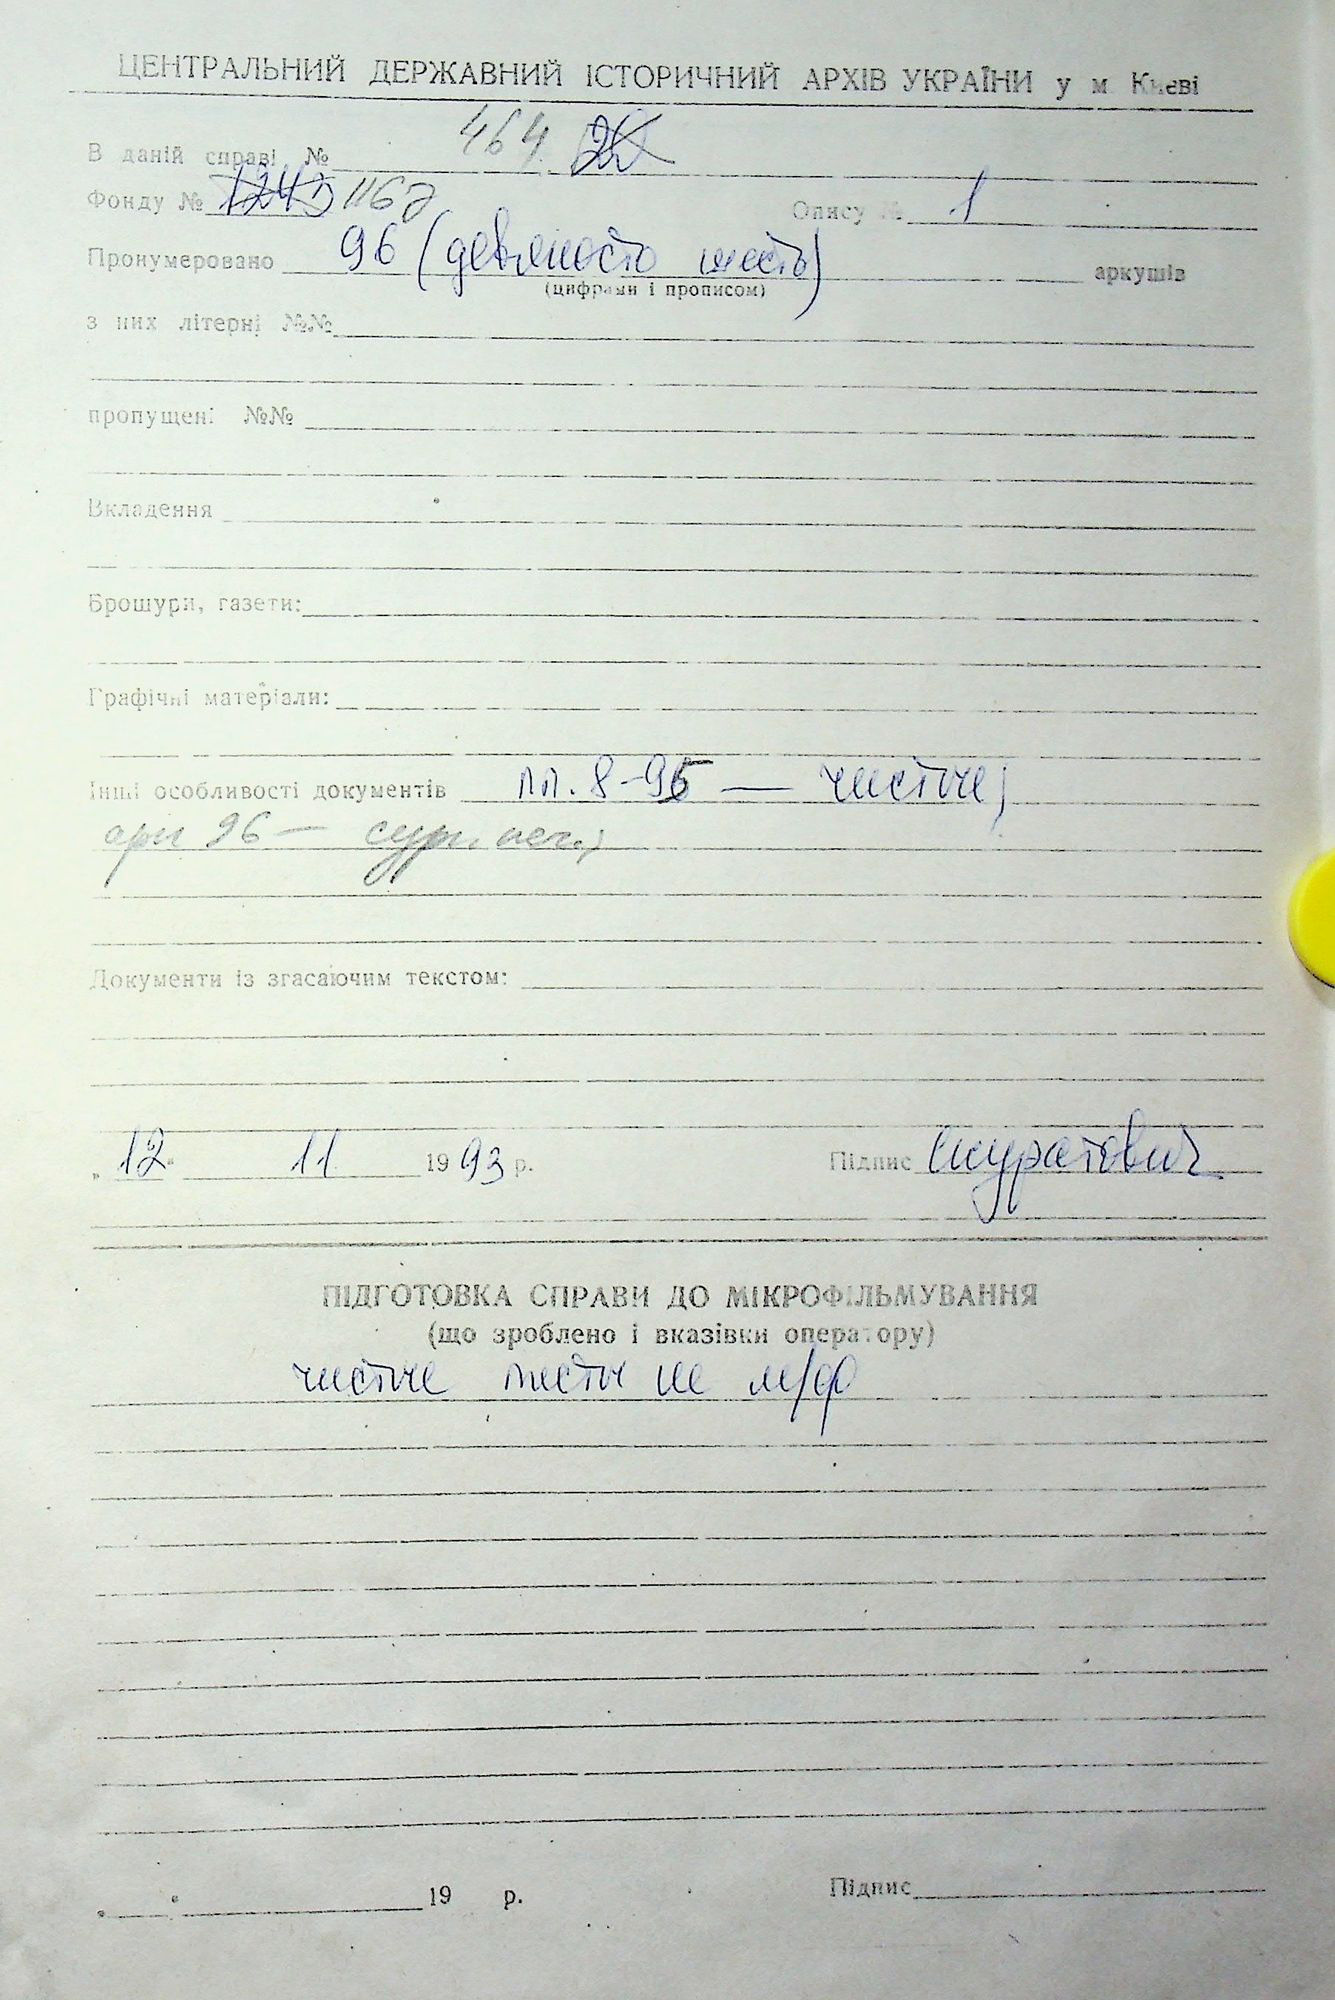 ЦЕНТРАЛЬНИЙ ДЕРЖАВНИЙ ІСТОРИЧНИЙ АРХІВ УКРАЇНИ у м. Києві
В даній справі № 464
Фонду № Опису № 1
Пронумеровано 96 (девяносто шесть) аркушів
(цифрами і прописом)
з них літерні №№
пропущені №№
Вкладення
Брошури, газети:
Графічні матеріали:
Інші особливості документів лл. 8-95 — чистые;
96 — сург. печ.;
Документи із згасаючим текстом:
„12“ 11 1993 р. Підпис Скуратович
ПІДГОТОВКА СПРАВИ ДО МІКРОФІЛЬМУВАННЯ
(що зроблено і вказівки оператору)
чистые листы не м/ф
19 р. Підпис